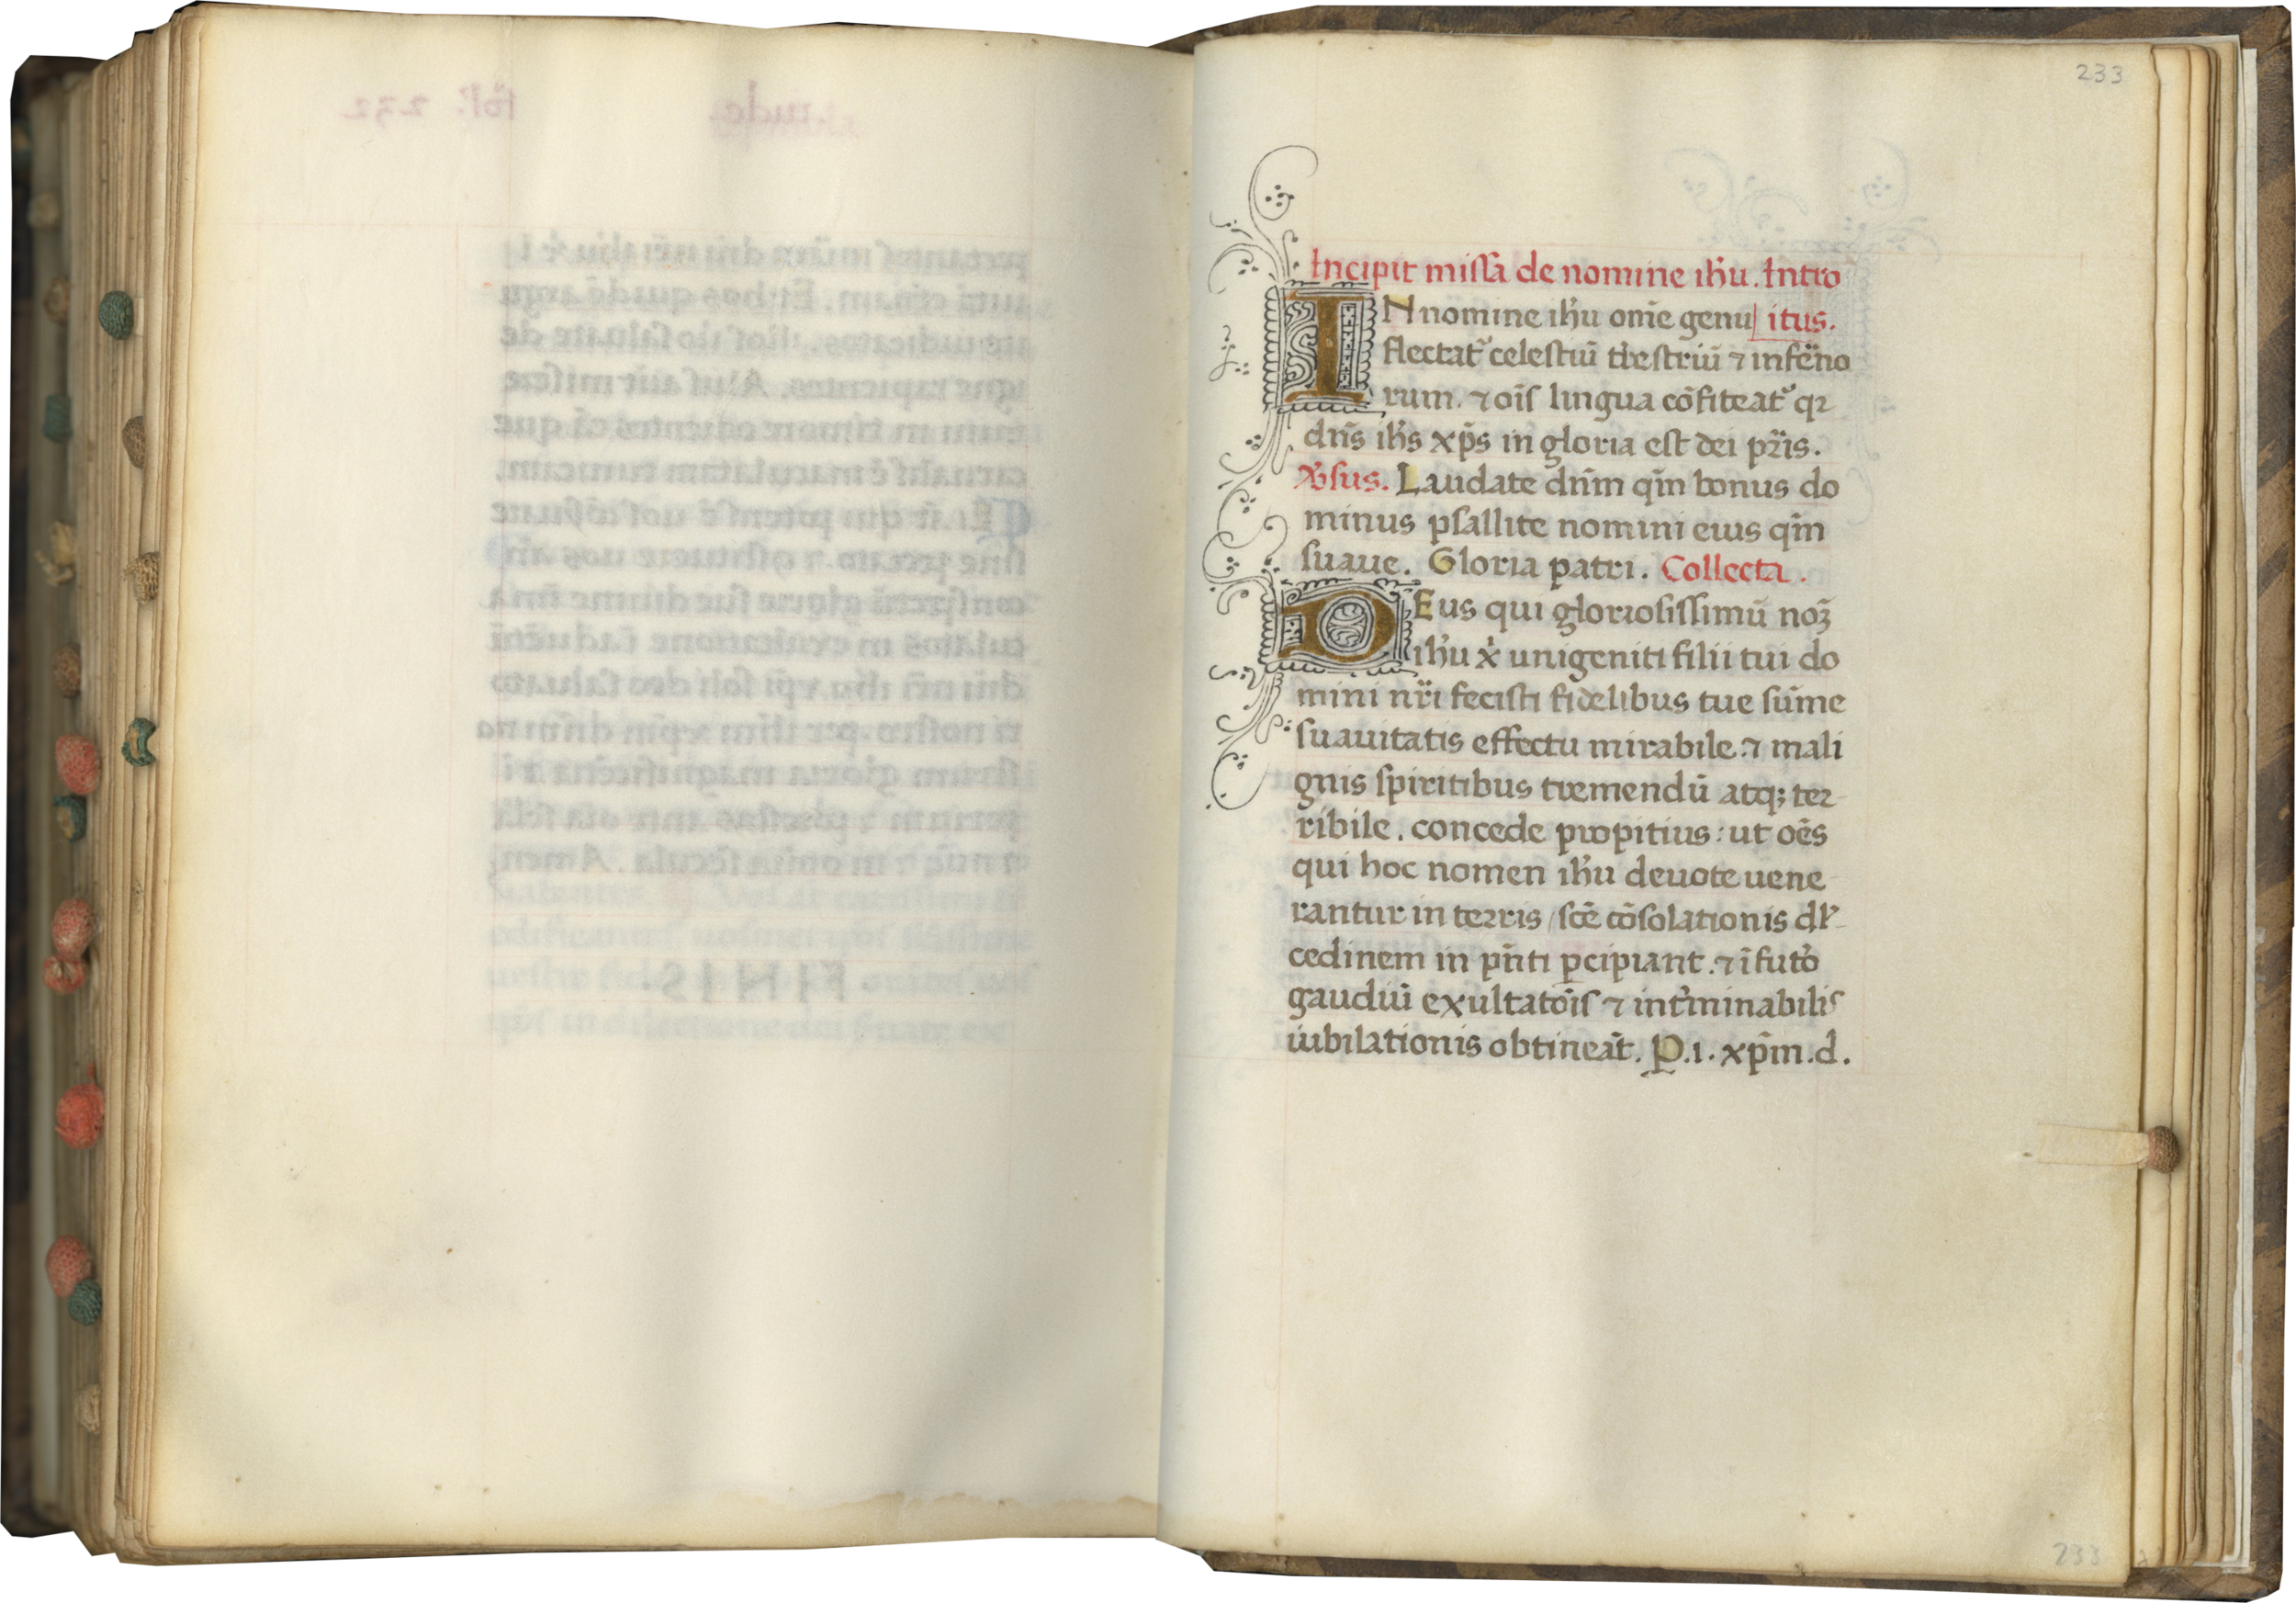 233
Incipit missa de nomine ihu. Intro
IN nomine ihu om̄e genu itus.
flectat᷑ celestiū tr̄estriū ⁊ infe᷑no
rum. ⁊ oīs lingua cōfiteat᷑ qꝛ
dn̄s ih̄s xp̄s in gloria est dei pr̄is.
V̄sus. Laudate dn̄m qm̄ bonus do
minus psallite nomini eius qm̄
suaue. Gloria patri. Collecta.
DEus qui gloriosissimū noꝫ
ih̄u x̄ unigeniti filii tui do
mini nr̄i fecisti fidelibus tue sūme
suauitatis effectu mirabile. ⁊ mali
gnis spiritibus tremendū atqꝫ ter
ribile. concede propitius: ut oēs
qui hoc nomen ih̄u deuote uene
rantur in terris / scē cōsolationis dl̄
cedinem in pn̄ti ꝑcipiant. ⁊ ī futo᷑
gaudiū exultatōis ⁊ int᷑minabilis
iubilationis obtineāt. P.i. xp̄m.d.
233